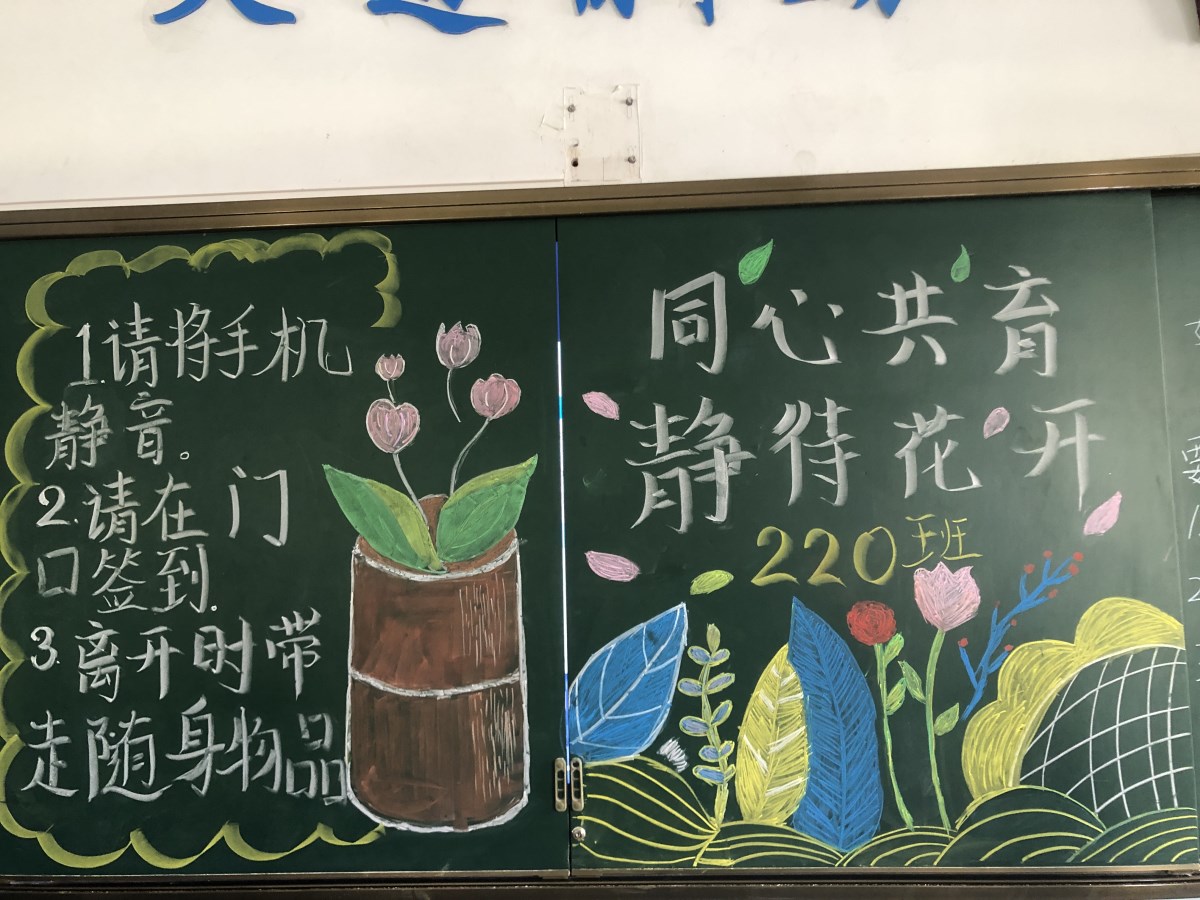 1.请将手机
静音。
2.请在门
口签到.
3.离开时带
走随身物品
同心共育
静待花开
220班